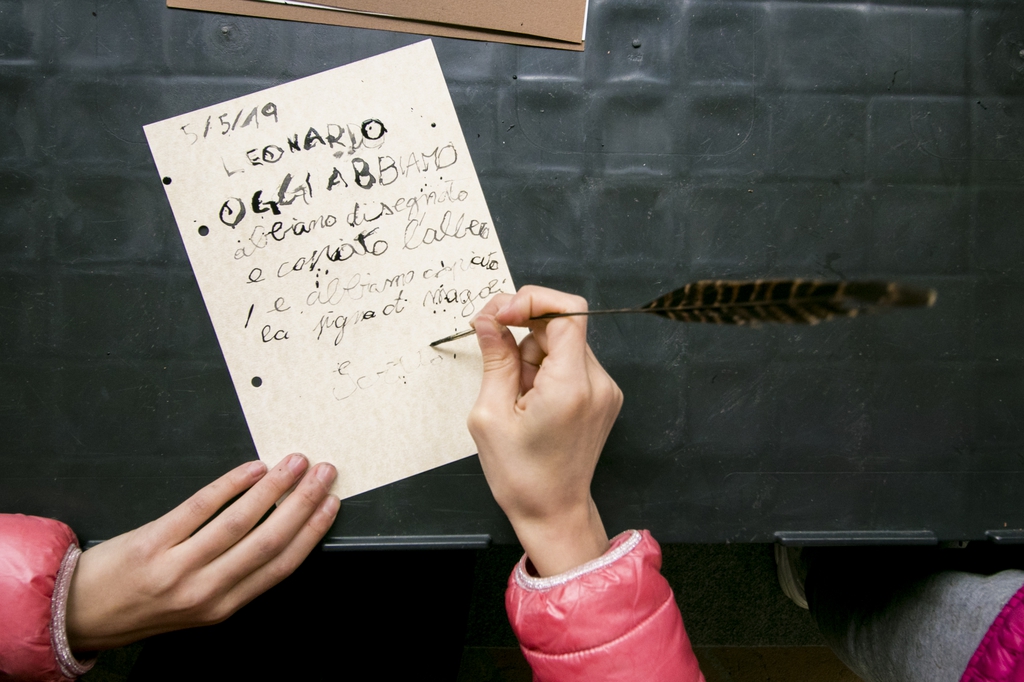 5/5/19
LEONARDO
OGGI ABBIAMO
abbiano disegnato
e copiato l'albero
e abbiamo copiato
la signa di